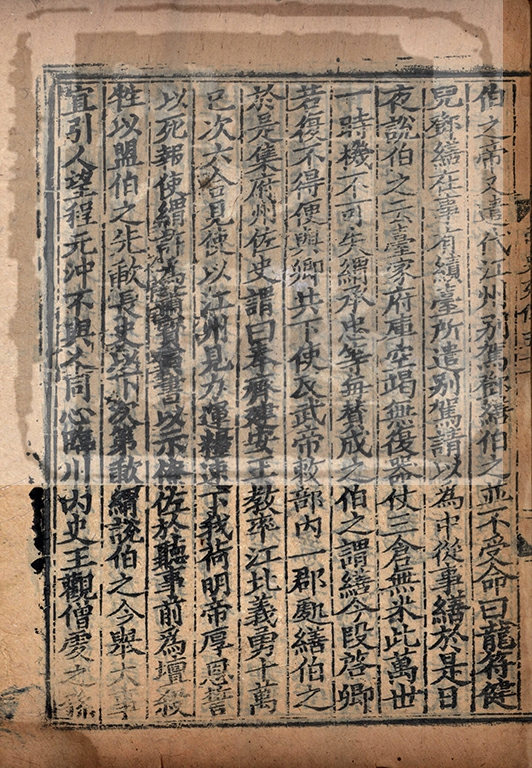 伯之帝又遣代江州別駕鄧繕伯之並不受命曰龍符健
兒鄧繕在事有績臺所遣別駕請以為中從事繕於是日
夜說伯之云臺家府庫空竭無復器仗三倉無米此萬世
一時機不可失縜承忠等每贊成之伯之謂繕今段啓卿
若復不得便與卿共下使反武帝敕部內一郡處繕伯之
於是集府州佐史謂曰奉齊建安王教率江北義勇十萬
已次六合見使以江州見力運糧速下我荷明帝厚恩誓
以死報使縜詐為蕭寶夤書以示僚佐於聽事前爲壇殺
牲以盟伯之先歃長史以下次第歃縜說伯之今舉大事
宜引人望程元沖不與人同心臨川內史王觀僧虔之孫